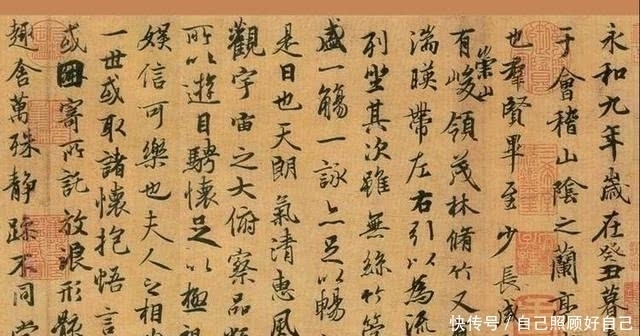 永和九年歲在癸丑暮
于會稽山陰之蘭亭
也羣賢畢至少長咸
有崇山峻領茂林脩竹又
湍暎帶左右引以為流
列坐其次雖無絲竹管
盛一觴一詠亦足以暢
是日也天朗氣清惠風
觀宇宙之大俯察品類
所以遊目騁懷足以極
娛信可樂也夫人之相
一世或取諸懷抱悟言
或因寄所託放浪形骸
趣舍萬殊靜躁不同當
快传号/自己照顾好自己